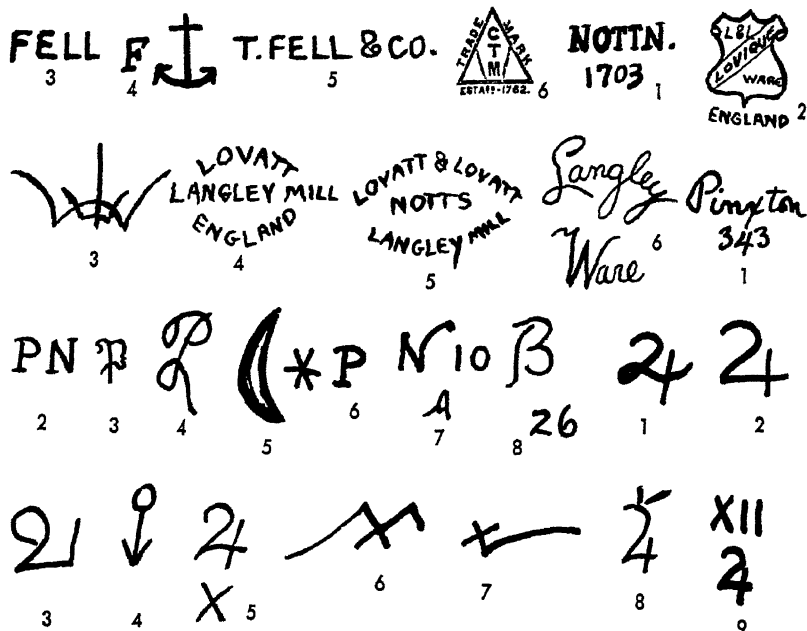 FELL
3
F
4
T. FELL & CO.
5
TRADE MARK
C
T
M
ESTABD-1762.
6
NOTTN.
1703
1
L&L
LOVIQUE
WARE
ENGLAND
2
3
LOVATT
LANGLEY MILL
ENGLAND
4
LOVATT & LOVATT
NOTTS
LANGLEY MILL
5
Langley
Ware
6
Pinxton
343
1
PN
2
P
3
P
4
5
*P
6
N 10
A
7
B
26
8
2
1
2
2
3
4
X
5
6
7
8
XII
9